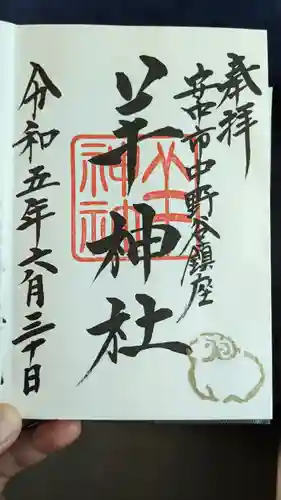 奉拝
安中市中野谷鎮座
羊神社
令和五年六月三十日